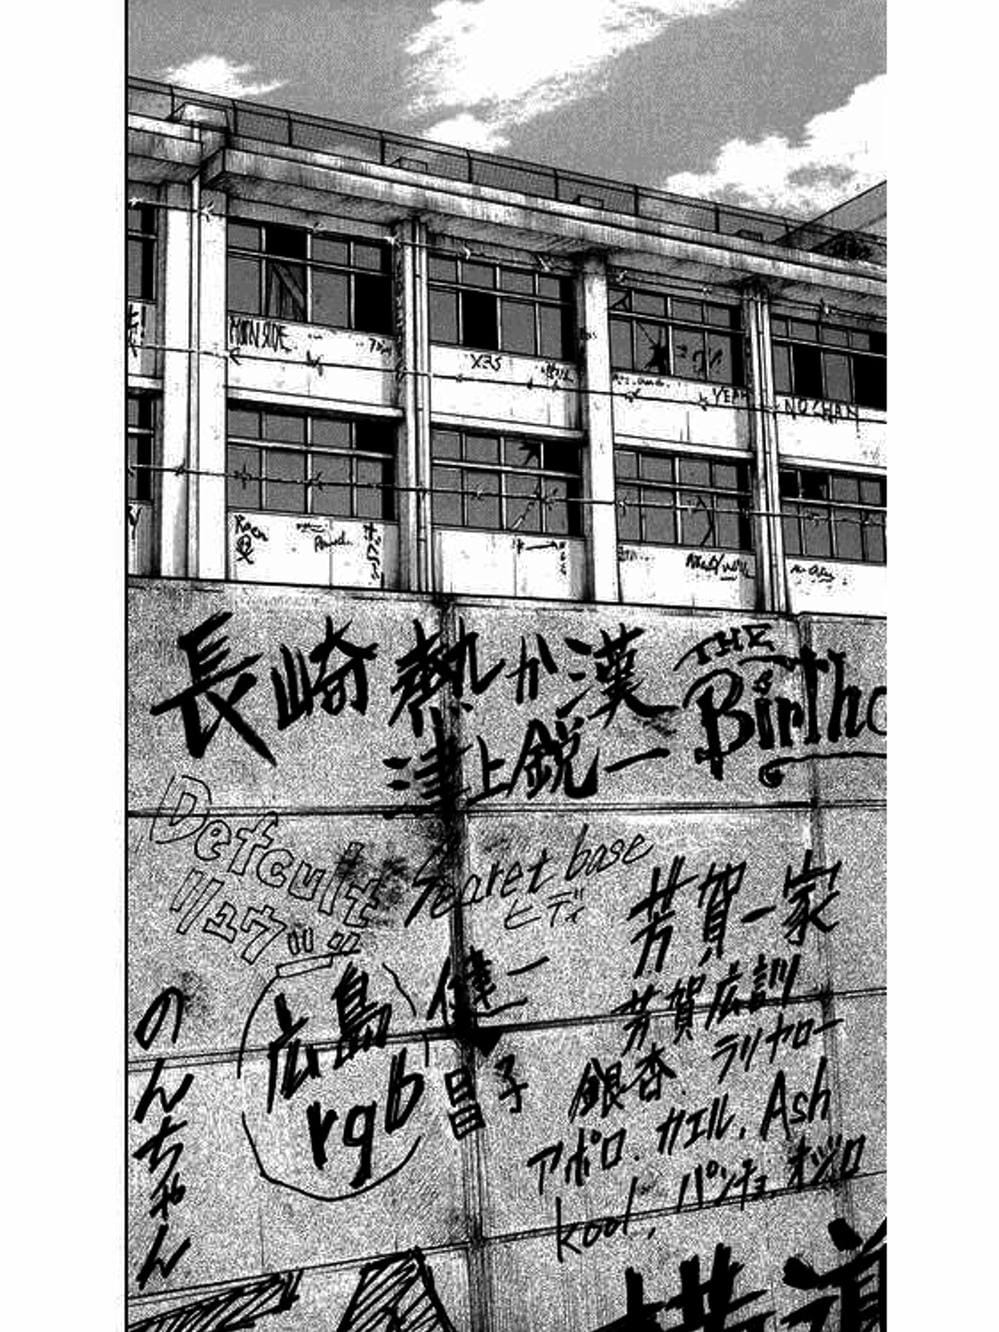 MOON SIDE
X3S
YEAH
NOCHAN
長崎 熱しか漢
THE
Birtho
津上鋭一
Defcult
リュウジ
Searet base
ヒディ
芳賀一家
芳賀広訓
健一
広島
rgb
昌子
のんちゃん
銀杏.ラリヤロー
アポロ.カエル.Ash
kool,パンチョ,オジロ
横道